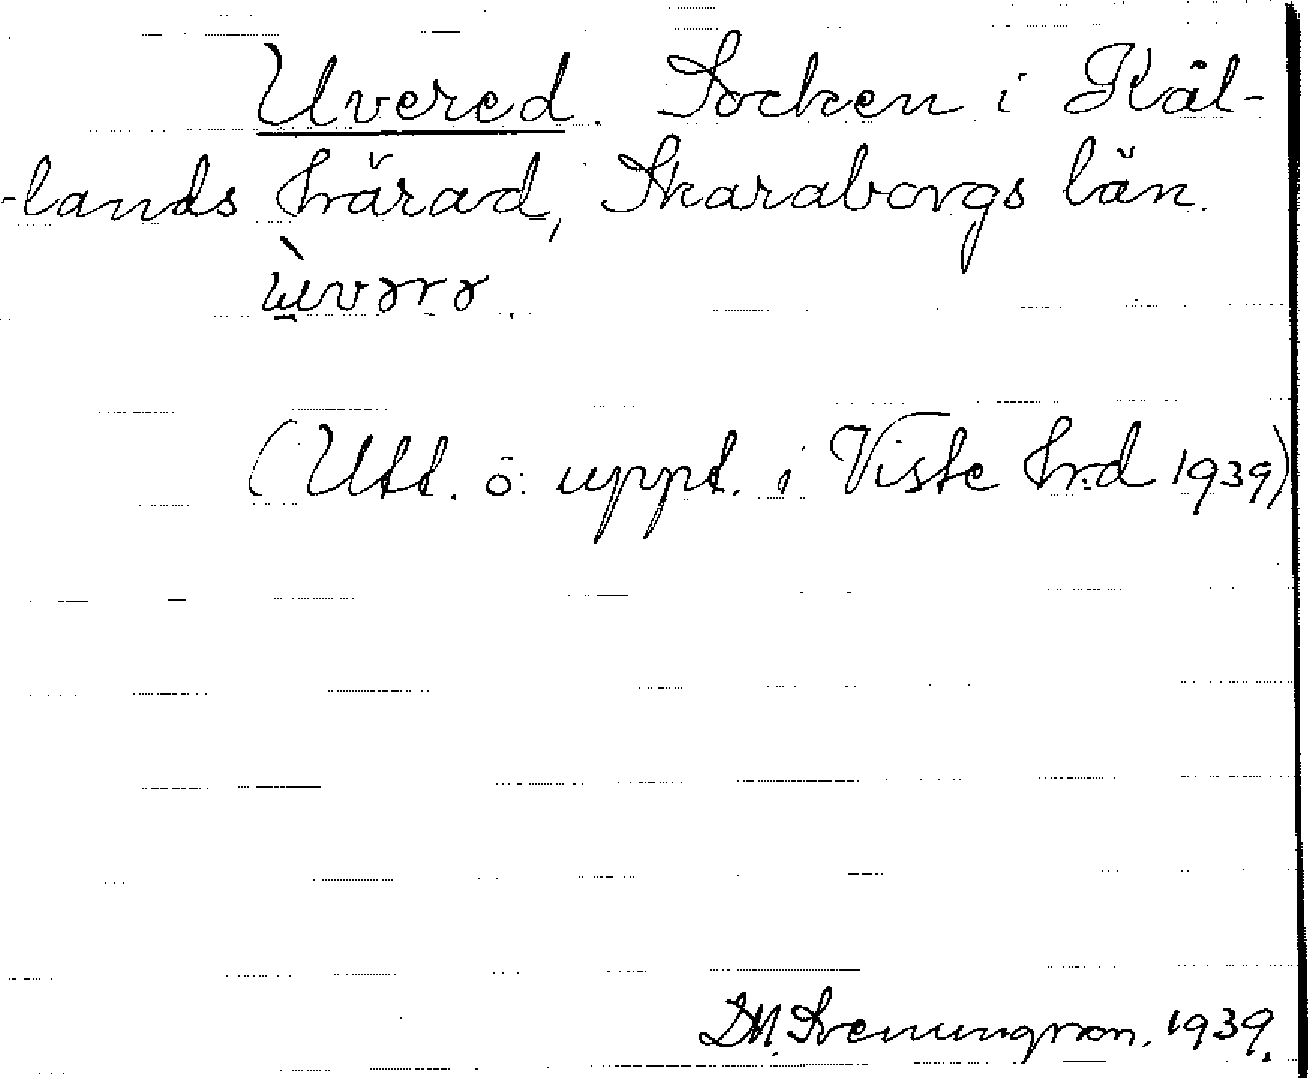 Uvered. Socken i Kål-
-lands härad, Skaraborgs län.
ùvərə.
(Utt. o. uppt. i Viste hrd 1939)
D.M. Svenungsson. 1939.